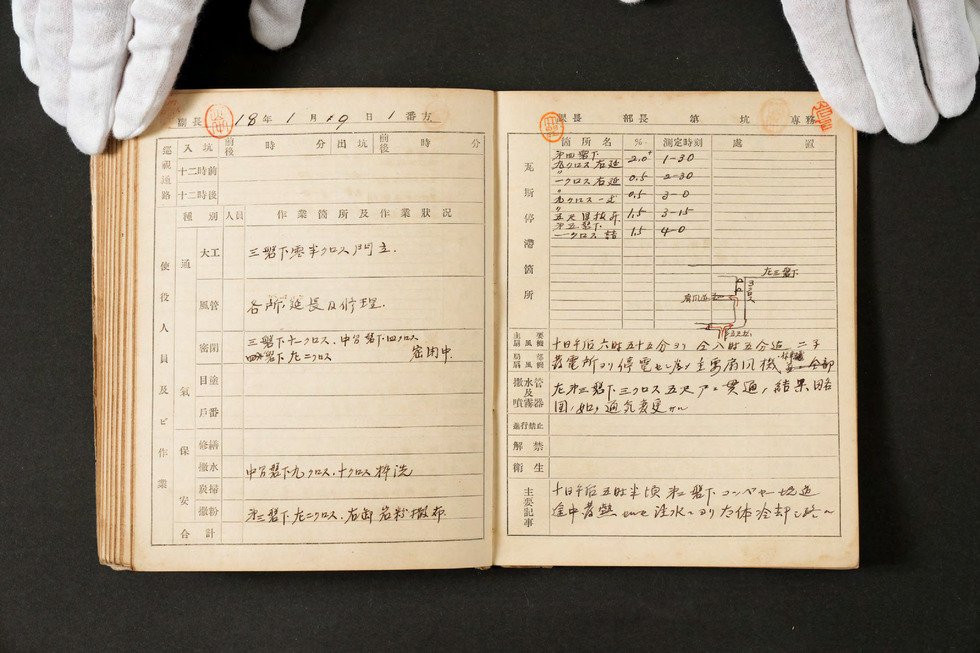 副長 18年1月19日1番方
巡視通路 入坑 前後 時 分 出坑 前後 時 分
十二時前
十二時後
使役人員及ビ作業
種別 人員 作業箇所及作業狀况
通氣
大工 三盤下零半クロス門主.
風管 各所延長及修理.
密閉 三盤下十クロス、中ヅ盤下四クロス
四盤下左二クロス 密閉中.
目塗
戶番
保安
修繕
撒水 中ヅ盤下九クロス、十クロス枠洗
炭掃
撒粉 第三盤下左二クロス、右面岩粉撒布
合計
課長 部長 鎭坑 専務
瓦斯停滯箇所
箇所名 % 測定時刻 處置
第四盤下
九クロス右延 2.0+ 1-30
〃
一クロス右延 0.5 2-30
〃
九クロス 0.5 3-0
〃
五尺 1.5 3-15
第三盤下
一クロス詰 1.5 4-0
左三盤下
三クロス
扇風機
主要扇風機
局部等扇風機
十日午后六時五十五分ヨリ 八時五分迄 二子
發電所ヨリ停電セシ為メ主要扇風機 全部
撒水管及噴霧器
左第三盤下三クロス五尺 貫通ノ結果略
図ノ如ク通気変更
並行禁止
解禁
衛生
主要記事
十日午后五時半頃 第二盤下コンベヤー坑道
途中發熱 注水ニヨリ大体冷却